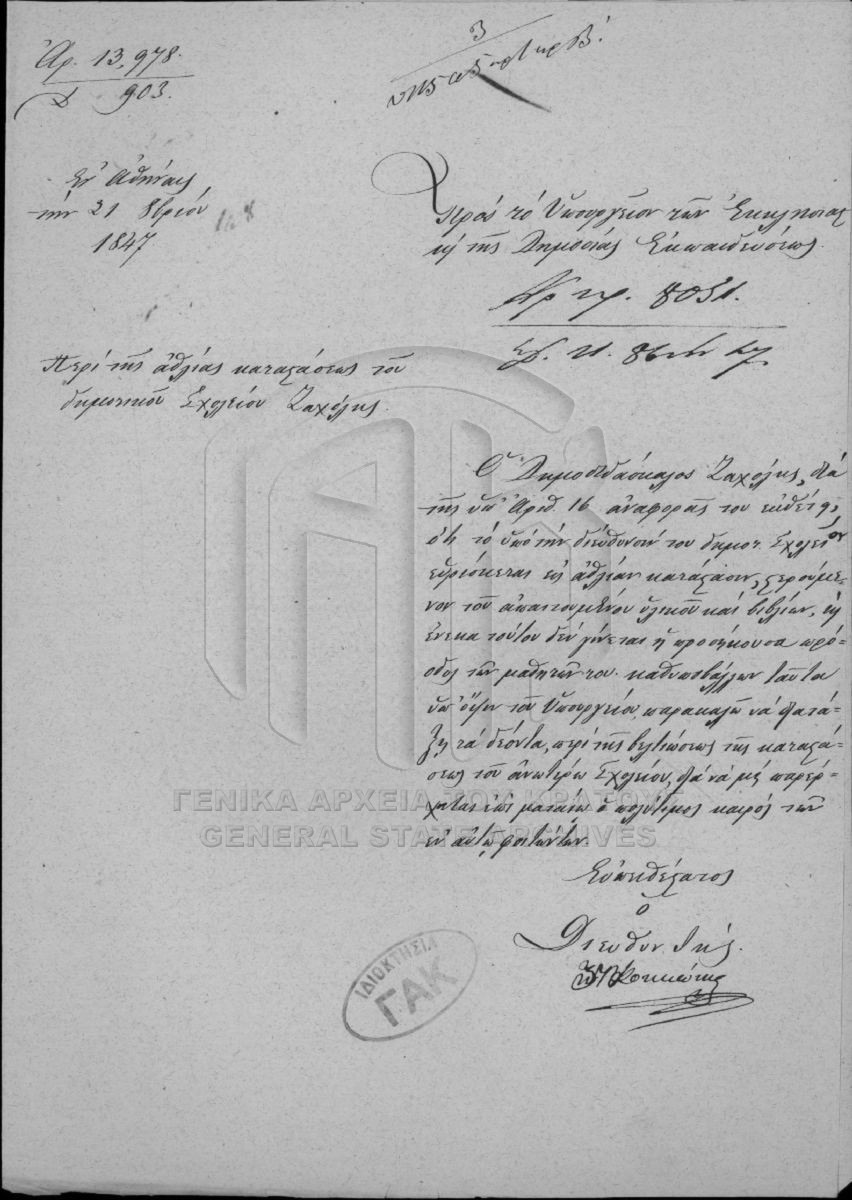 Ἀρ. 13,978.
Δ 903.
3
Ἐν Ἀθήναις
τὴν 21 8βρίου
1847
Πρὸς τὸ Ὑπουργεῖον τῶν Ἐκκλησιαστ.
κ τῆς Δημοσίας Ἐκπαιδεύσεως.
Ἀρ. πρ. 8031.
Περὶ τῆς ἀθλίας καταστάσεως τοῦ
δημοτικοῦ Σχολείου Ζαχόλης.
Ὁ Δημοδιδάσκαλος Ζαχόλης, διὰ
τῆς ὑπ' Ἀριθ. 16 ἀναφορᾶς του ἐκθέτει,
ὅτι τὸ ὑπὸ τὴν διεύθυνσίν του δημοτ. Σχολεῖον
εὑρίσκεται εἰς ἀθλίαν κατάστασιν, στερούμε-
νον τοῦ ἀπαιτουμένου ὑλικοῦ καὶ βιβλίων, κ
ἕνεκα τούτου δὲν γίνεται ἡ προσήκουσα πρό-
οδος τῶν μαθητῶν του. καθυποβάλλων ταῦτα
ὑπ' ὄψιν τοῦ Ὑπουργείου, παρακαλῶ νὰ διατά-
ξῃ τὰ δέοντα, περὶ τῆς βελτιώσεως τῆς καταστά-
σεως τοῦ ἀνωτέρω Σχολείου, διὰ νὰ μὴ παρέρ-
χηται εἰς μάτην ὁ πολύτιμος καιρὸς τῶν
ἐν αὐτῷ φοιτώντων.
Εὐπειθέστατος
ὁ
Διευθυντής.
ΓΕΝΙΚΑ ΑΡΧΕΙΑ ΤΟΥ ΚΡΑΤΟΥΣ
GENERAL STATE ARCHIVES
ΙΔΙΟΚΤΗΣΙΑ
ΓΑΚ